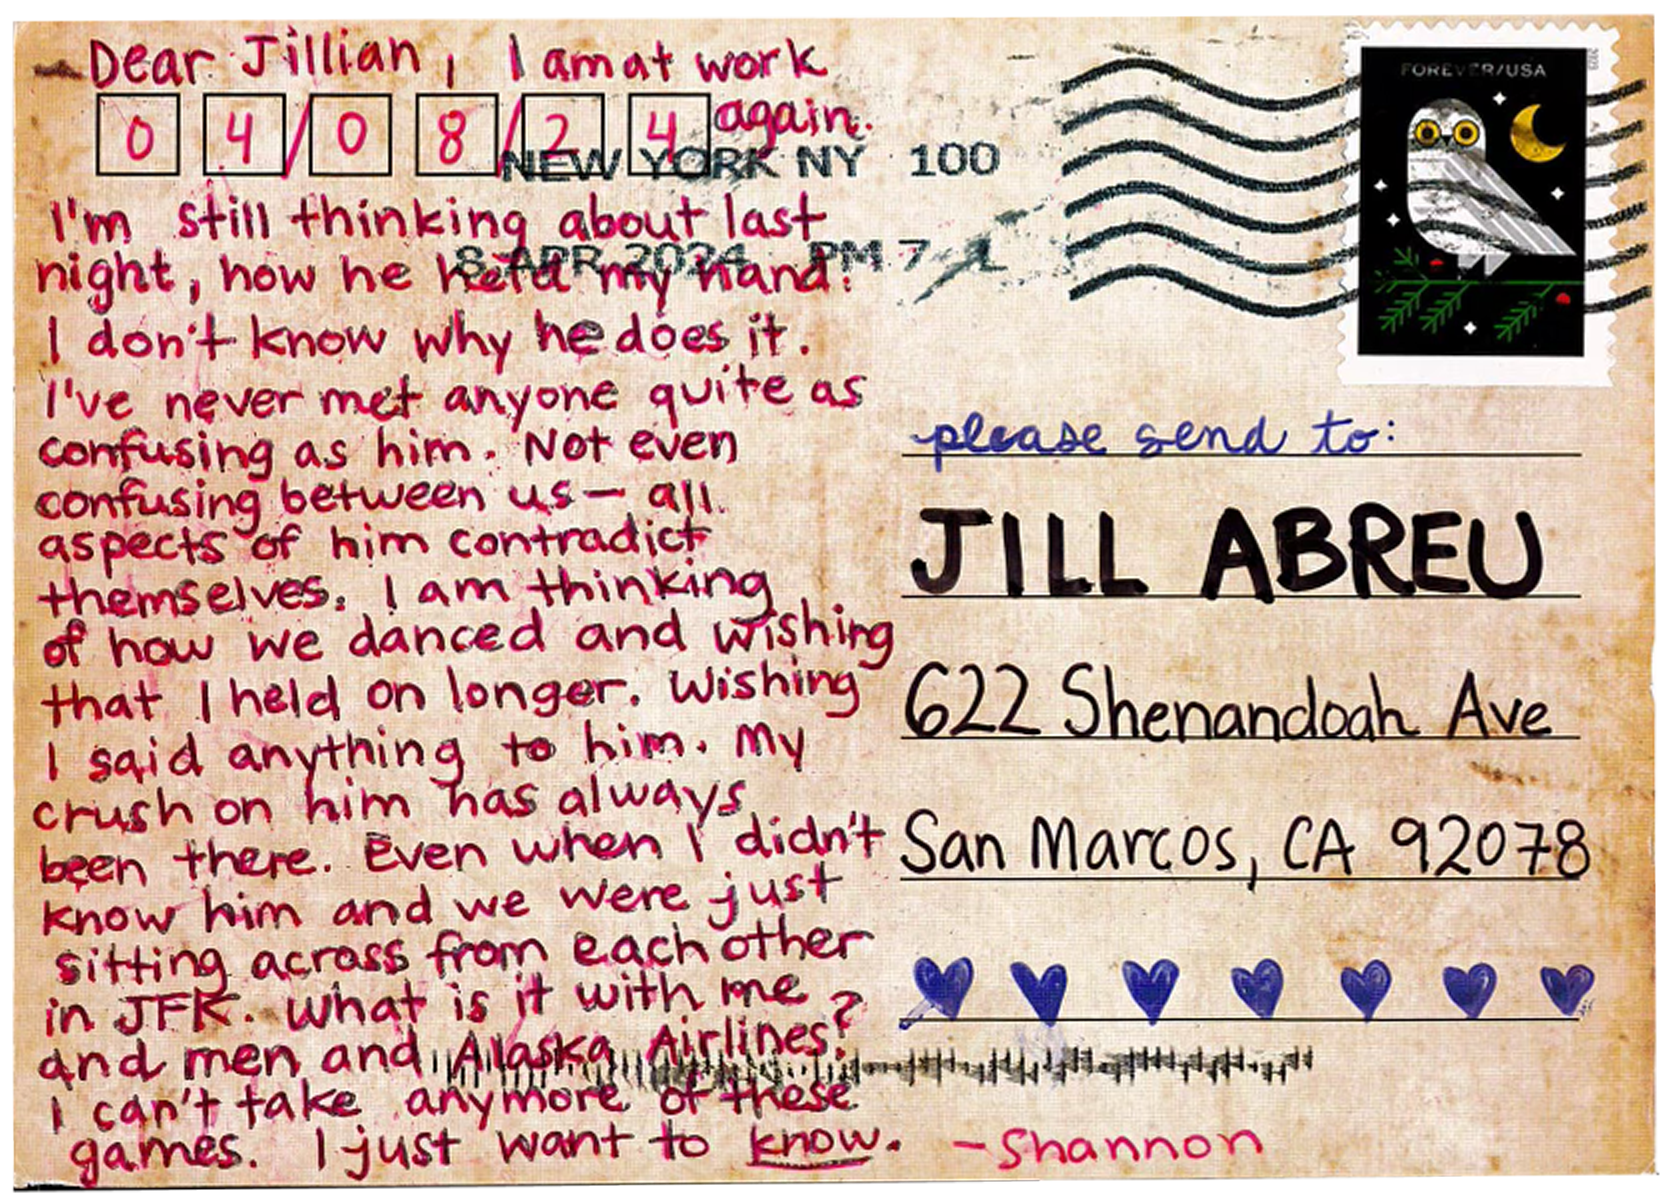 Dear Jillian, I am at work
04/08/24 again.
I'm still thinking about last
night, how he held my hand.
I don't know why he does it.
I've never met anyone quite as
confusing as him. Not even
confusing between us — all
aspects of him contradict
themselves. I am thinking
of how we danced and wishing
that I held on longer. Wishing
I said anything to him. My
crush on him has always
been there. Even when I didn't
know him and we were just
sitting across from each other
in JFK. What is it with me
and men and Alaska Airlines?
I can't take anymore of these
games. I just want to know. -Shannon
NEW YORK NY 100
8 APR 2024 PM 7 L
FOREVER/USA
please send to:
JILL ABREU
622 Shenandoah Ave
San Marcos, CA 92078